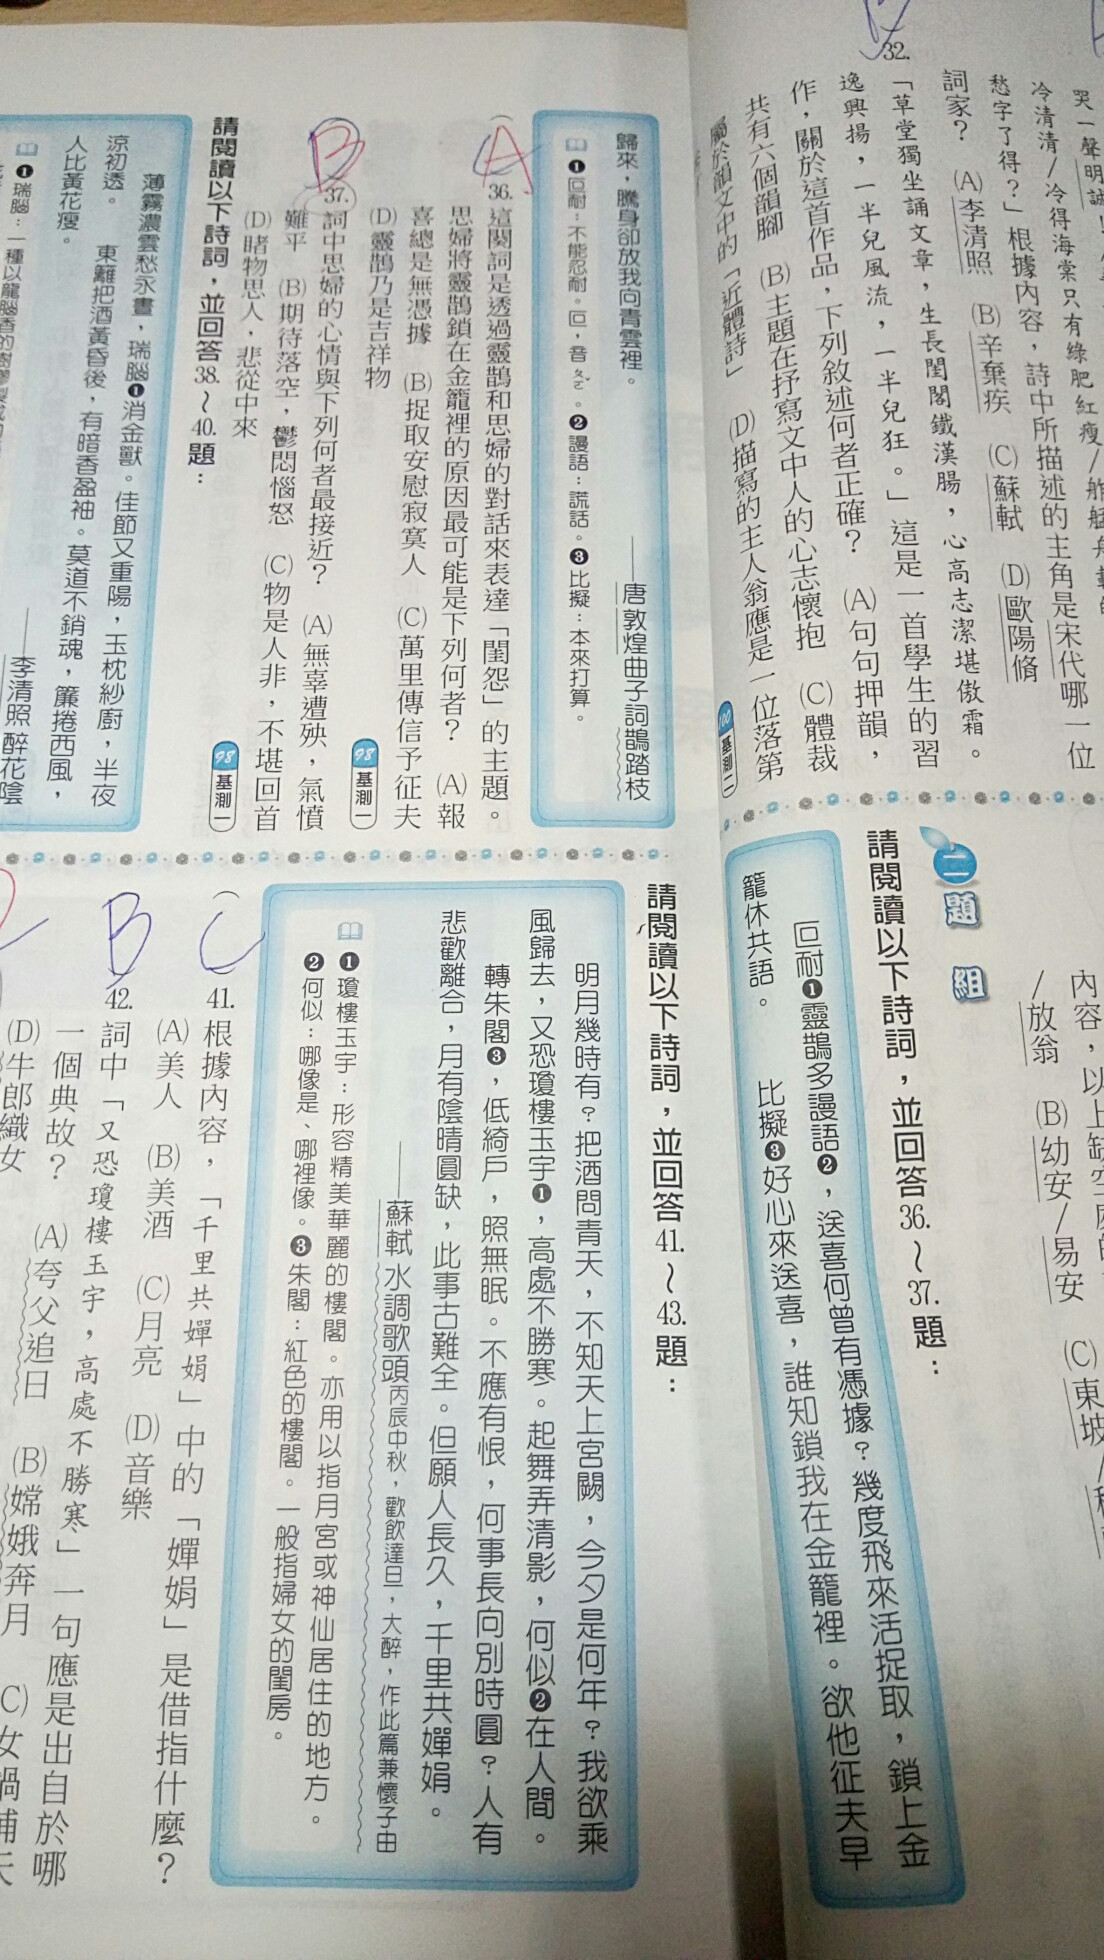 哭一聲明誠！
冷清清／冷得海棠只有綠肥紅瘦／舴艋舟載
愁字了得？」根據內容，詩中所描述的主角是宋代哪一位
詞家？　(A)李清照　(B)辛棄疾　(C)蘇軾　(D)歐陽脩
B
32.「草堂獨坐誦文章，生長閨閣鐵漢腸，心高志潔堪傲霜。
逸興揚，一半兒風流，一半兒狂。」這是一首學生的習
作，關於這首作品，下列敘述何者正確？　(A)句句押韻，
共有六個韻腳　(B)主題在抒寫文中人的心志懷抱　(C)體裁
屬於韻文中的「近體詩」　(D)描寫的主人翁應是一位落第
100基測二
內容，以上缺空處
／放翁　(B)幼安／易安　(C)東坡／
二題組
請閱讀以下詩詞，並回答36.～37.題：
叵耐❶靈鵲多謾語❷，送喜何曾有憑據？幾度飛來活捉取，鎖上金
籠休共語。　比擬❸好心來送喜，誰知鎖我在金籠裡。欲他征夫早
歸來，騰身卻放我向青雲裡。
——唐敦煌曲子詞鵲踏枝
❶叵耐：不能忍耐。叵，音ㄆㄛˇ。❷謾語：謊話。❸比擬：本來打算。
A
36.這闋詞是透過靈鵲和思婦的對話來表達「閨怨」的主題。
思婦將靈鵲鎖在金籠裡的原因最可能是下列何者？　(A)報
喜總是無憑據　(B)捉取安慰寂寞人　(C)萬里傳信予征夫
(D)靈鵲乃是吉祥物
98基測一
B
37.詞中思婦的心情與下列何者最接近？　(A)無辜遭殃，氣憤
難平　(B)期待落空，鬱悶惱怒　(C)物是人非，不堪回首
(D)睹物思人，悲從中來
98基測一
請閱讀以下詩詞，並回答38.～40.題：
薄霧濃雲愁永晝，瑞腦❶消金獸。佳節又重陽，玉枕紗廚，半夜
涼初透。　東籬把酒黃昏後，有暗香盈袖。莫道不銷魂，簾捲西風，
人比黃花瘦。
——李清照醉花陰
❶瑞腦：一種以龍腦香的樹膠製成的
請閱讀以下詩詞，並回答41.～43.題：
明月幾時有？把酒問青天，不知天上宮闕，今夕是何年？我欲乘
風歸去，又恐瓊樓玉宇❶，高處不勝寒。起舞弄清影，何似❷在人間。
轉朱閣❸，低綺戶，照無眠。不應有恨，何事長向別時圓？人有
悲歡離合，月有陰晴圓缺，此事古難全。但願人長久，千里共嬋娟。
——蘇軾水調歌頭丙辰中秋，歡飲達旦，大醉，作此篇兼懷子由
❶瓊樓玉宇：形容精美華麗的樓閣。亦用以指月宮或神仙居住的地方。
❷何似：哪像是、哪裡像。❸朱閣：紅色的樓閣。一般指婦女的閨房。
C
41.根據內容，「千里共嬋娟」中的「嬋娟」是借指什麼？
(A)美人　(B)美酒　(C)月亮　(D)音樂
B
42.詞中「又恐瓊樓玉宇，高處不勝寒」一句應是出自於哪
一個典故？　(A)夸父追日　(B)嫦娥奔月　(C)女媧補天
(D)牛郎織女